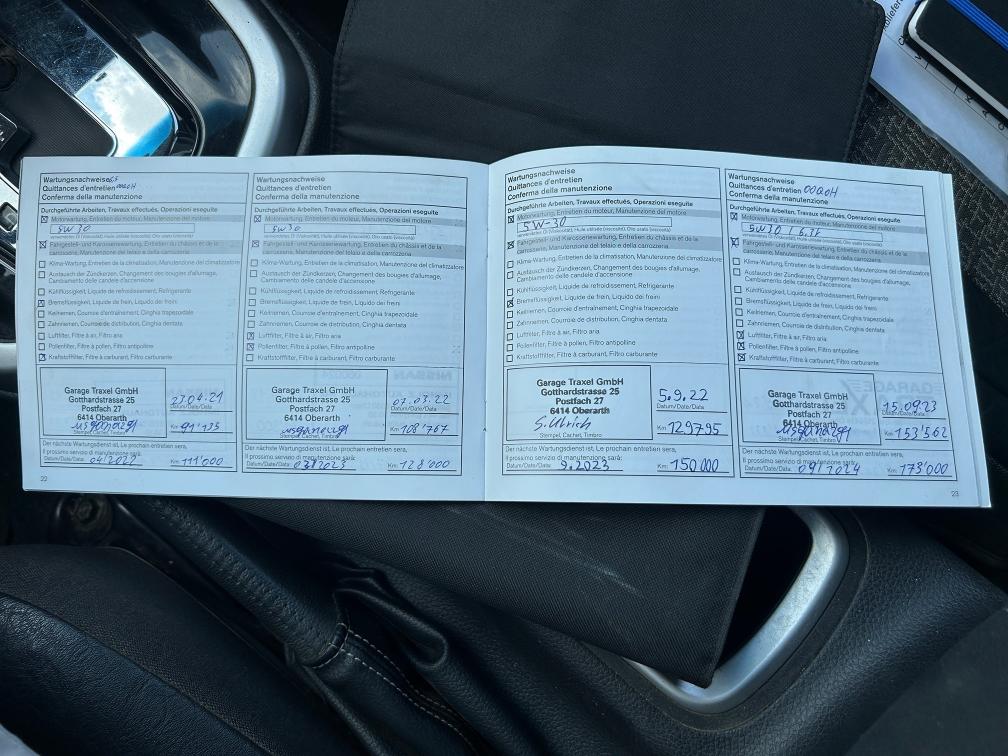 Wartungsnachweise
Quittances d'entretien 00Q0H
Conferma della manutenzione
Durchgeführte Arbeiten, Travaux effectués, Operazioni eseguite
Motorwartung, Entretien du moteur, Manutenzione del motore
5W30
verwendetes Öl (Viskosität), Huile utilisée (viscosité), Olio usato (viscosità)
Fahrgestell- und Karosseriewartung, Entretien du châssis et de la
carrosserie, Manutenzione del telaio e della carrozzeria
Klima-Wartung, Entretien de la climatisation, Manutenzione del climatizzatore
Austausch der Zündkerzen, Changement des bougies d'allumage,
Cambiamento delle candele d'accensione
Kühlflüssigkeit, Liquide de refroidissement, Refrigerante
Bremsflüssigkeit, Liquide de frein, Liquido dei freini
Keilriemen, Courroie d'entraînement, Cinghia trapezoidale
Zahnriemen, Courroie de distribution, Cinghia dentata
Luftfilter, Filtre à air, Filtro aria
Pollenfilter, Filtre à pollen, Filtro antipolline
Kraftstofffilter, Filtre à carburant, Filtro carburante
Garage Traxel GmbH
Gotthardstrasse 25
Postfach 27
6414 Oberarth
Stempel, Cachet, Timbro
27.04.21
Datum/Date/Data
Km 91'135
Der nächste Wartungsdienst ist, Le prochain entretien sera,
Il prossimo servizio di manutenzione sarà:
Datum/Date/Data: 04/2022 Km: 111'000
22
Wartungsnachweise
Quittances d'entretien
Conferma della manutenzione
Durchgeführte Arbeiten, Travaux effectués, Operazioni eseguite
Motorwartung, Entretien du moteur, Manutenzione del motore
5W30
verwendetes Öl (Viskosität), Huile utilisée (viscosité), Olio usato (viscosità)
Fahrgestell- und Karosseriewartung, Entretien du châssis et de la
carrosserie, Manutenzione del telaio e della carrozzeria
Klima-Wartung, Entretien de la climatisation, Manutenzione del climatizzatore
Austausch der Zündkerzen, Changement des bougies d'allumage,
Cambiamento delle candele d'accensione
Kühlflüssigkeit, Liquide de refroidissement, Refrigerante
Bremsflüssigkeit, Liquide de frein, Liquido dei freini
Keilriemen, Courroie d'entraînement, Cinghia trapezoidale
Zahnriemen, Courroie de distribution, Cinghia dentata
Luftfilter, Filtre à air, Filtro aria
Pollenfilter, Filtre à pollen, Filtro antipolline
Kraftstofffilter, Filtre à carburant, Filtro carburante
Garage Traxel GmbH
Gotthardstrasse 25
Postfach 27
6414 Oberarth
Stempel, Cachet, Timbro
07.03.22
Datum/Date/Data
Km 108'767
Der nächste Wartungsdienst ist, Le prochain entretien sera,
Il prossimo servizio di manutenzione sarà:
Datum/Date/Data: 03/2023 Km: 128'000
Wartungsnachweise
Quittances d'entretien
Conferma della manutenzione
Durchgeführte Arbeiten, Travaux effectués, Operazioni eseguite
Motorwartung, Entretien du moteur, Manutenzione del motore
5W-30
verwendetes Öl (Viskosität), Huile utilisée (viscosité), Olio usato (viscosità)
Fahrgestell- und Karosseriewartung, Entretien du châssis et de la
carrosserie, Manutenzione del telaio e della carrozzeria
Klima-Wartung, Entretien de la climatisation, Manutenzione del climatizzatore
Austausch der Zündkerzen, Changement des bougies d'allumage,
Cambiamento delle candele d'accensione
Kühlflüssigkeit, Liquide de refroidissement, Refrigerante
Bremsflüssigkeit, Liquide de frein, Liquido dei freini
Keilriemen, Courroie d'entraînement, Cinghia trapezoidale
Zahnriemen, Courroie de distribution, Cinghia dentata
Luftfilter, Filtre à air, Filtro aria
Pollenfilter, Filtre à pollen, Filtro antipolline
Kraftstofffilter, Filtre à carburant, Filtro carburante
Garage Traxel GmbH
Gotthardstrasse 25
Postfach 27
6414 Oberarth
S. Ulrich
Stempel, Cachet, Timbro
5.9.22
Datum/Date/Data
Km 129795
Der nächste Wartungsdienst ist, Le prochain entretien sera,
Il prossimo servizio di manutenzione sarà:
Datum/Date/Data: 9.2023 Km: 150000
Wartungsnachweise
Quittances d'entretien 00Q0H
Conferma della manutenzione
Durchgeführte Arbeiten, Travaux effectués, Operazioni eseguite
Motorwartung, Entretien du moteur, Manutenzione del motore
5W30
verwendetes Öl (Viskosität), Huile utilisée (viscosité), Olio usato (viscosità)
Fahrgestell- und Karosseriewartung, Entretien du châssis et de la
carrosserie, Manutenzione del telaio e della carrozzeria
Klima-Wartung, Entretien de la climatisation, Manutenzione del climatizzatore
Austausch der Zündkerzen, Changement des bougies d'allumage,
Cambiamento delle candele d'accensione
Kühlflüssigkeit, Liquide de refroidissement, Refrigerante
Bremsflüssigkeit, Liquide de frein, Liquido dei freini
Keilriemen, Courroie d'entraînement, Cinghia trapezoidale
Zahnriemen, Courroie de distribution, Cinghia dentata
Luftfilter, Filtre à air, Filtro aria
Pollenfilter, Filtre à pollen, Filtro antipolline
Kraftstofffilter, Filtre à carburant, Filtro carburante
Garage Traxel GmbH
Gotthardstrasse 25
Postfach 27
6414 Oberarth
Stempel, Cachet, Timbro
15.09.23
Datum/Date/Data
Km 153'562
Der nächste Wartungsdienst ist, Le prochain entretien sera,
Il prossimo servizio di manutenzione sarà:
Datum/Date/Data: 09/2024 Km: 173'000
23